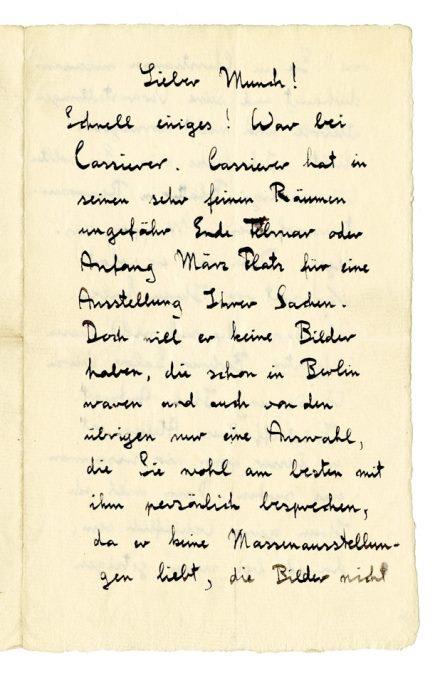 Lieber Munch!
Schnell einiges! War bei
Cassierer. Cassierer hat in
seinen sehr feinen Räumen
ungefähr Ende Februar oder
Anfang März Platz für eine
Ausstellung Ihrer Sachen.
Doch will er keine Bilder
haben, die schon in Berlin
waren und auch von den
übrigen nur eine Auswahl,
die Sie wohl am besten mit
ihm persönlich besprechen,
da er keine Massenausstellun-
gen liebt, die Bilder nicht